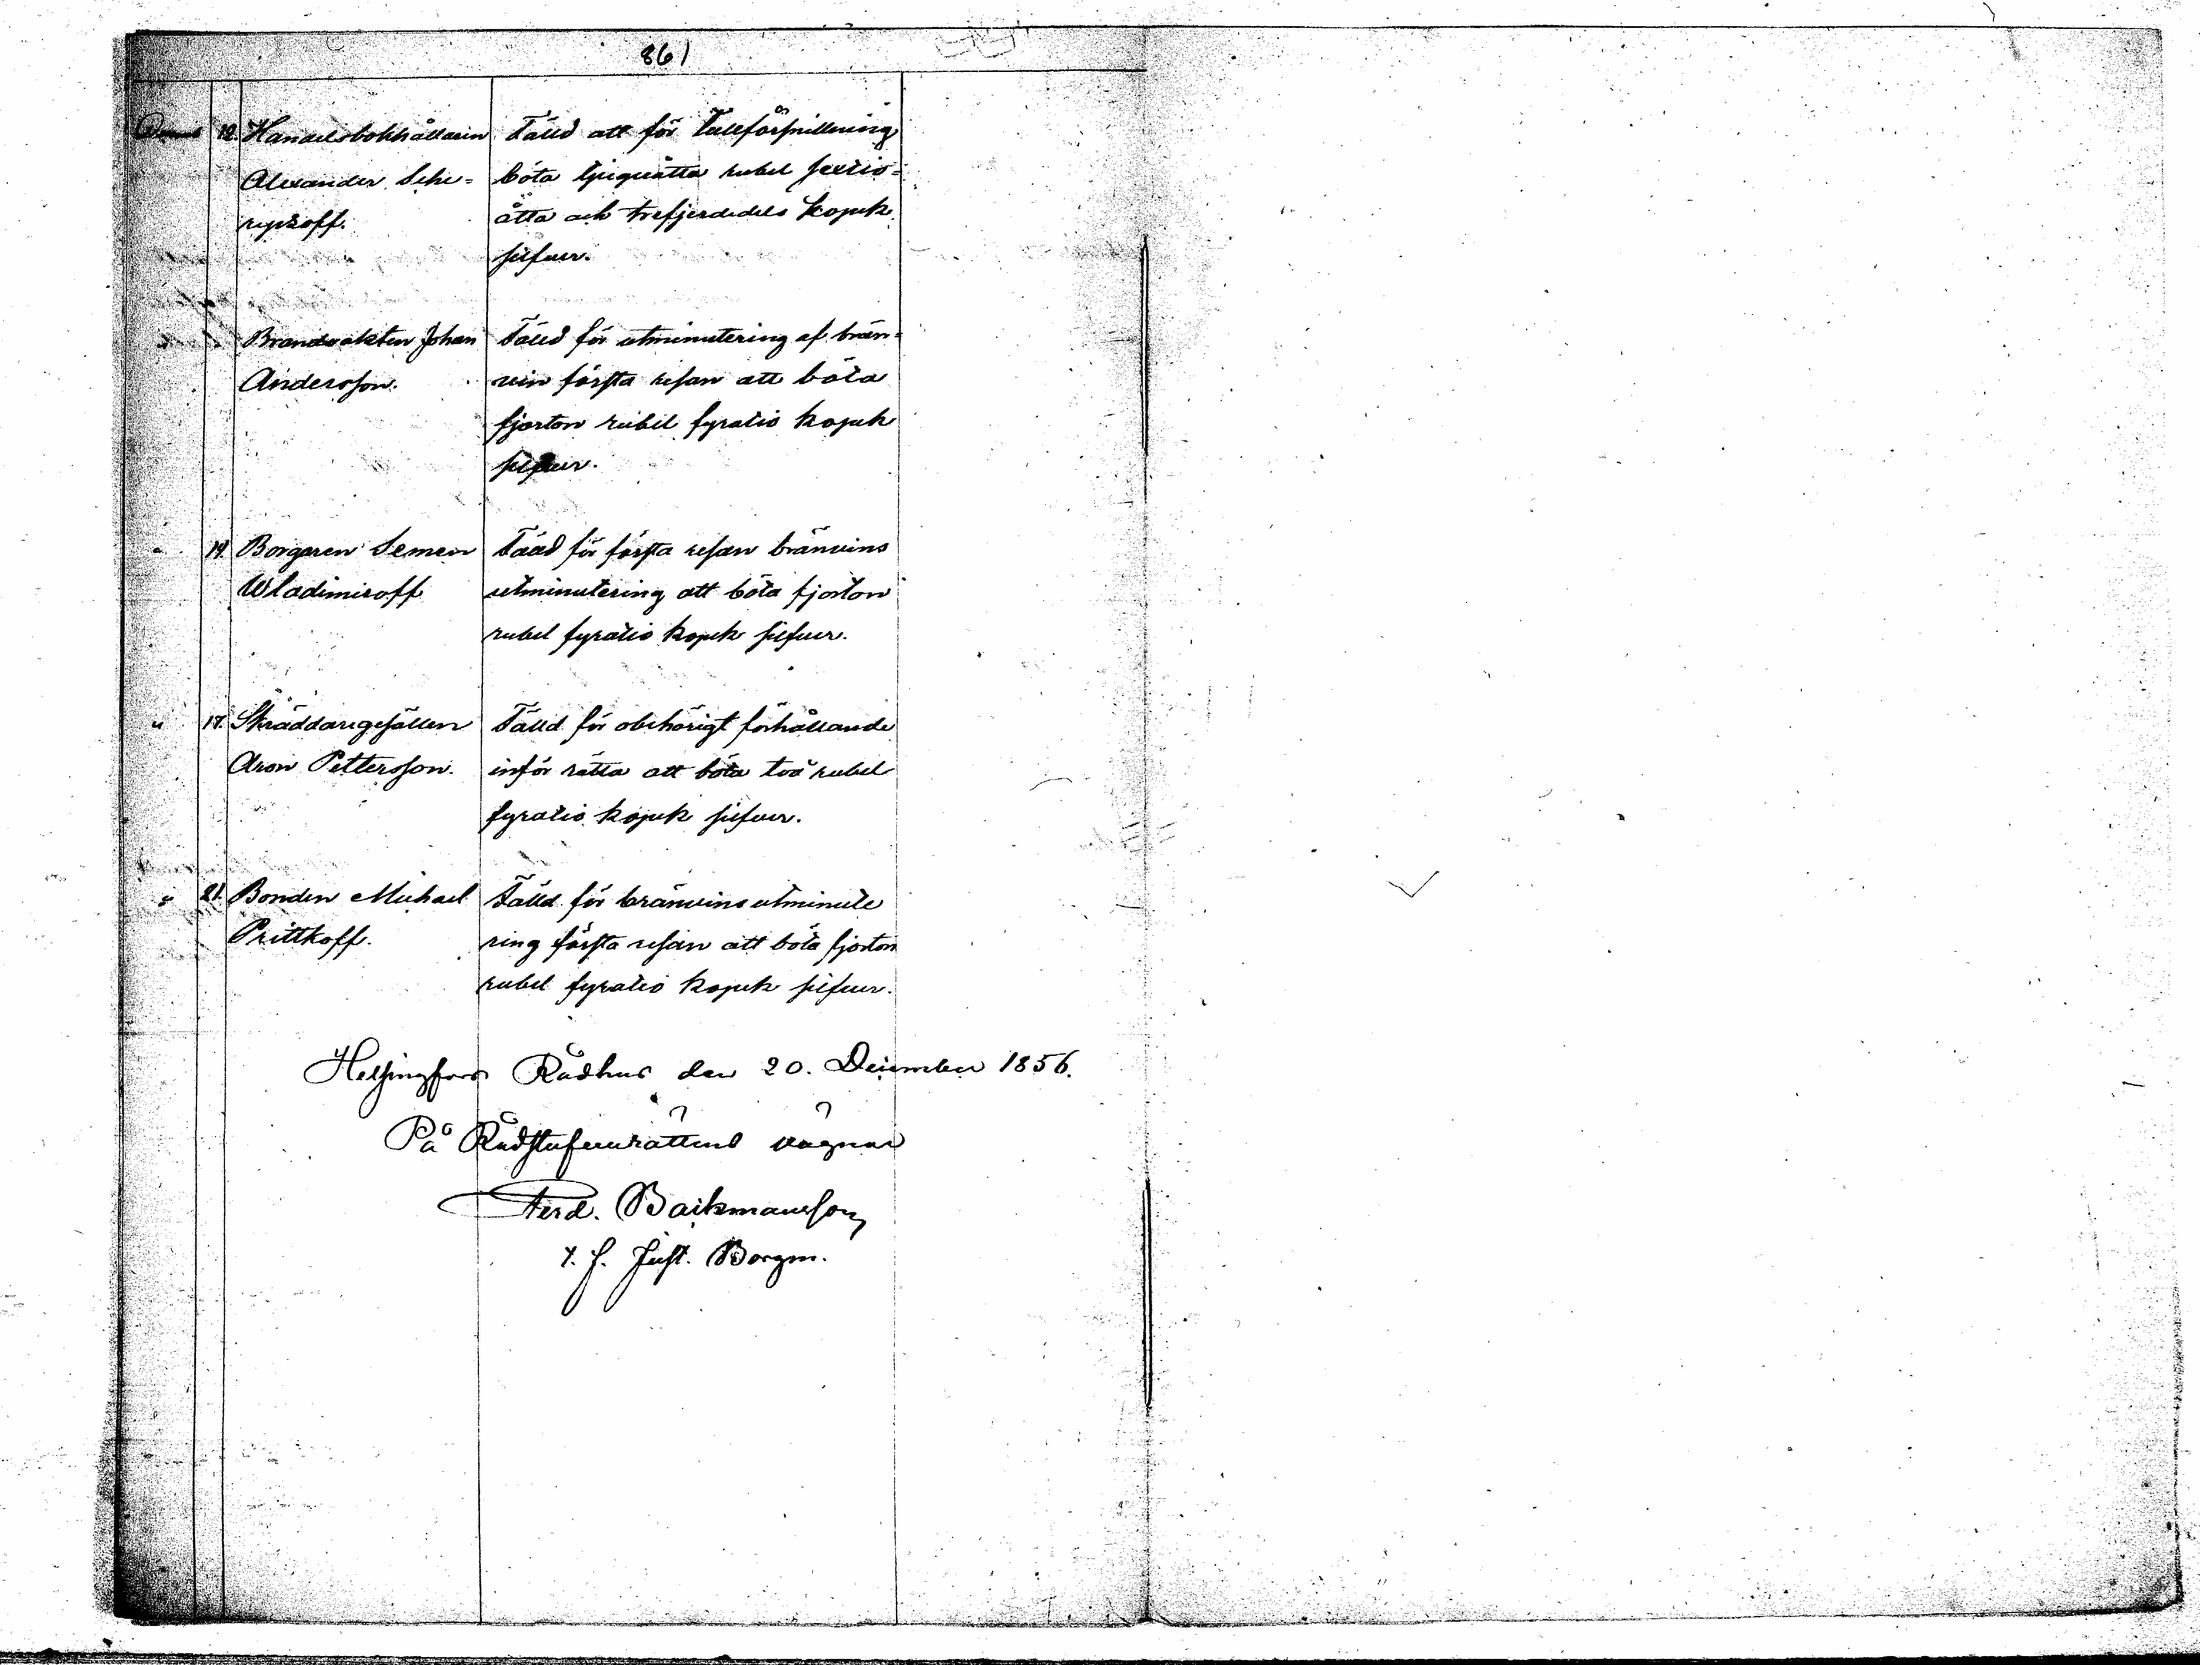 861
12. Handelsbokhållaren Fälld att för Tullförsnillning
Alexander Sche- böta tjuguåtta rubel sextio-
repzoff. åtta och trefjerdedels kopek
silfver.
Brandvakten Johan Fälld för utminutering af brän-
Andersson. vin första resan att böta
fjorton rubel fyratio kopek
silfver.
" 14. Borgaren Semen Fälld för första resan bränvins
Wladimiroff utminutering att böta fjorton
rubel fyratio kopek silfver.
" 17. Skräddaregesällen Fälld för obehörigt förhållande
Aron Pettersson. inför rätta att böta två rubel
fyratio kopek silfver.
" 21. Bonden Michael Fälld för bränvins utminute
Prittkoff. ring första resan att böta fjorton
rubel fyratio kopek silfver.
Helsingfors Rådhus den 20. December 1856.
På Rådstufvurättens vägnar
Ferd. Backmansson
t. f. Just. Borgm.